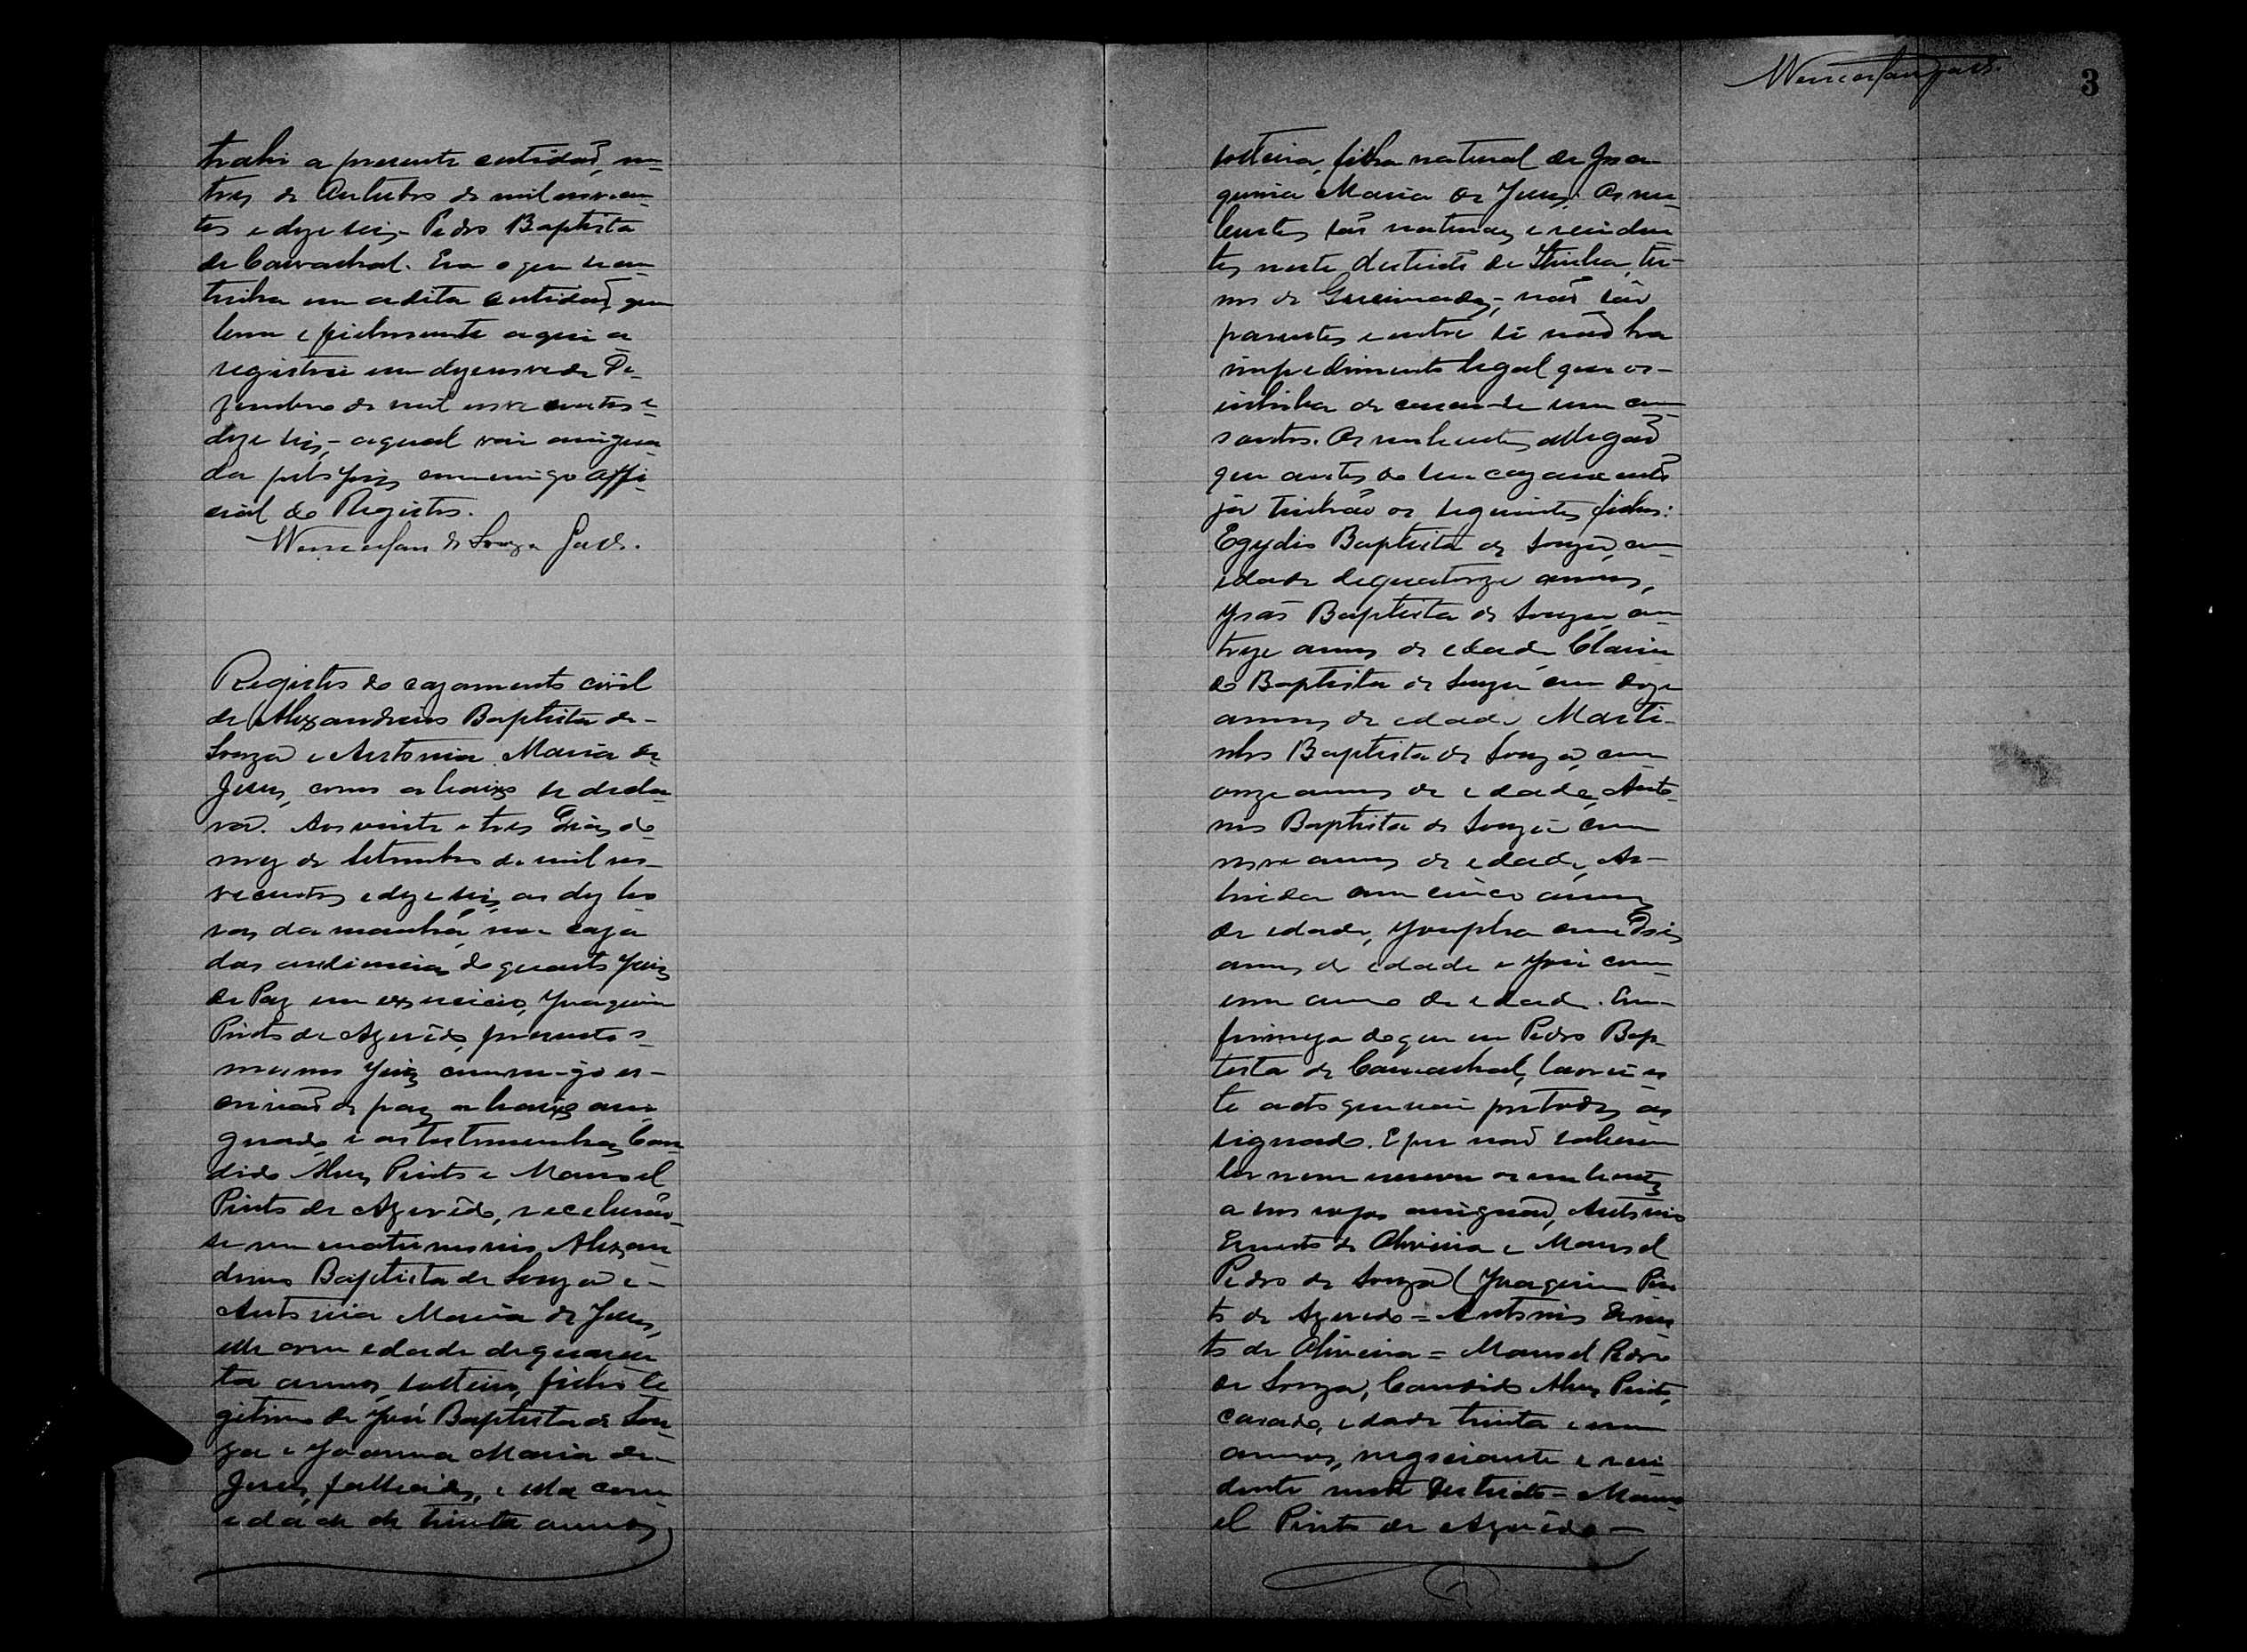 trahi a presente certidaõ, em
tres de Outubro de mil novecen-
tos e dezeseis- Pedro Baptista
de Carvachal. Era o que se con
tinha em a dita certidaõ, que
bem e fielmente aqui a
registrei em dezenove de De-
zembro de mil nove centos e
dezeseis, - a qual vai assigna-
da pelo Juiz commigo Offi-
cial do Registro.
de Souza
Registro do cazamento civil
de Alexandrino Baptista de-
Souza e Antonia Maria de
Jesus, como abaixo se decla-
ra. Aos vinte e tres dias do
mez de Setembro de mil no-
vecentos e dezeseis, as dez ho
ras da manhã, na caza
das audiencias do quarto Juiz
de Paz em exercicio, Joaquim
Pinto de Azevêdo, presente o
mesmo Juiz, commigo es-
crivaõ de paz abaixo assi-
gnado, e as testemunhas Can
dido Alves Pinto e Manoel
Pinto de Azevêdo, receberaõ-
se em matrimonio Alexan
drino Baptista de Souza e-
Antonia Maria de Jesus,
elle com edade de quaren
ta annos, solteiro, filho le
gitimo de José Baptista de Sou-
za e Joanna Maria de
Jesus, fallecidos, e ella com
edade de trinta annos,
3
solteira, filha natural de Joa-
quina Maria de Jesus. Os nu-
bentes saõ naturaes e residen
tes neste districto de Itiuba, ter-
mo de Queimadas,- naõ saõ
parentes e entre si naõ ha
impedimento legal que os-
inhiba de cazar-se um com
o outro. Os nubentes allegaõ
que antes do seu cazamento
já tinhão os seguintes filhos:
Egydio Baptista de Souza, com
edade de quatorze annos,
Joaõ Baptista de Souza, com
treze annos de edade, Clarin
do Baptista de Souza com doze
annos de edade, Marti-
nho Baptista de Souza, com
onze annos de edade, Anto-
nio Baptista de Souza com
nove annos de edade,
com cinco annos
de edade, Josepha com dois
annos de edade e José com
um anno de edade. Em
firmeza do que eu Pedro Bap-
tista de Carvachal, lavrei es
te acto que vai por todos as
signado. E por naõ saberem
ler nem escrever os nubentes
a seus rogos assignaõ, Antonio
Ernesto de Oliveira e Manoel
Pedro de Souza (Joaquim Pin
to de Azevedo = Antonio Ernes
to de Oliveira = Manoel Pedro
de Souza, Candido Alves Pinto,
casado, edade trinta e um
annos, negociante e resi-
dente neste districto - Mano
el Pinto de Azevêdo -